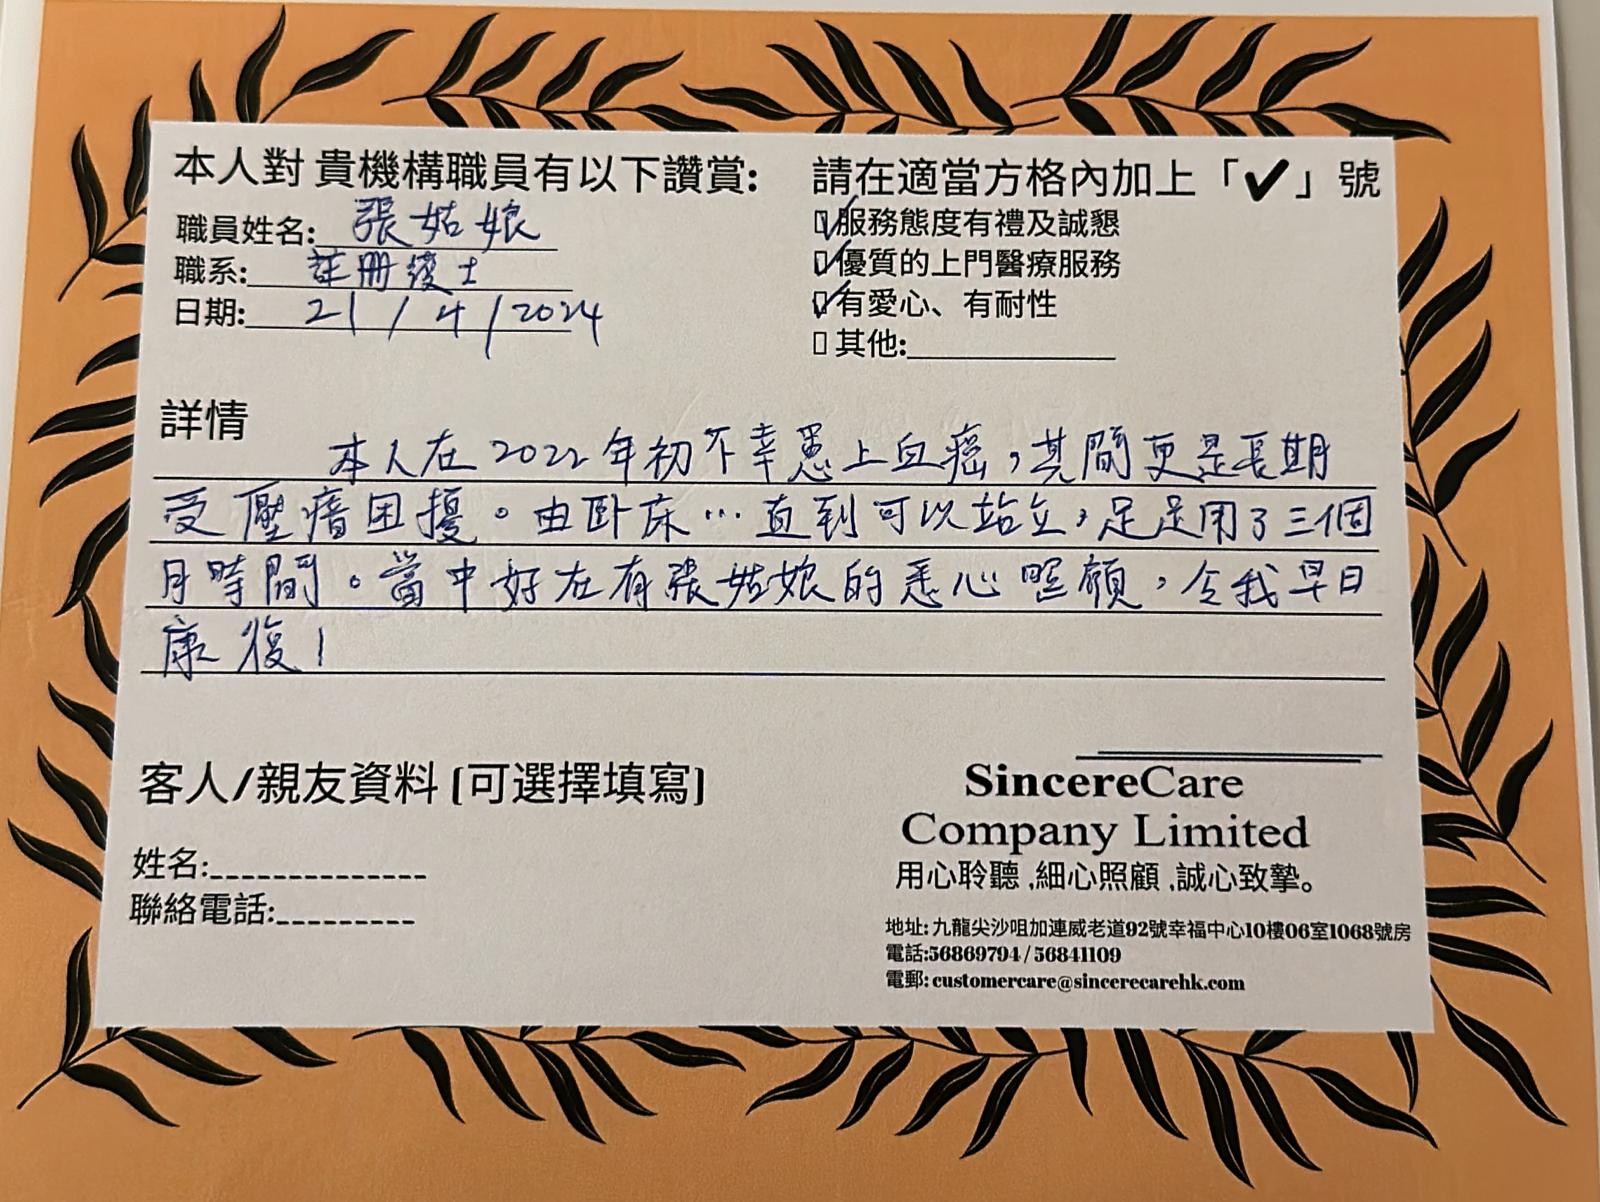 本人對 貴機構職員有以下讚賞:
職員姓名: 張姑娘
職系: 註冊護士
日期: 21 / 4 / 2024
請在適當方格內加上「✔」號
☑服務態度有禮及誠懇
☑優質的上門醫療服務
☑有愛心、有耐性
▯其他:
詳情
本人在2022年初不幸患上血癌，其間更是長期
受壓瘡困擾。由卧床…直到可以站立，足足用了三個
月時間。當中好在有張姑娘的悉心照顧，令我早日
康復！
客人/親友資料 (可選擇填寫)
姓名:
聯絡電話:
SincereCare
Company Limited
用心聆聽 ,細心照顧 ,誠心致摯。
地址: 九龍尖沙咀加連威老道92號幸福中心10樓06室1068號房
電話:56869794 / 56841109
電郵: customercare@sincerecarehk.com